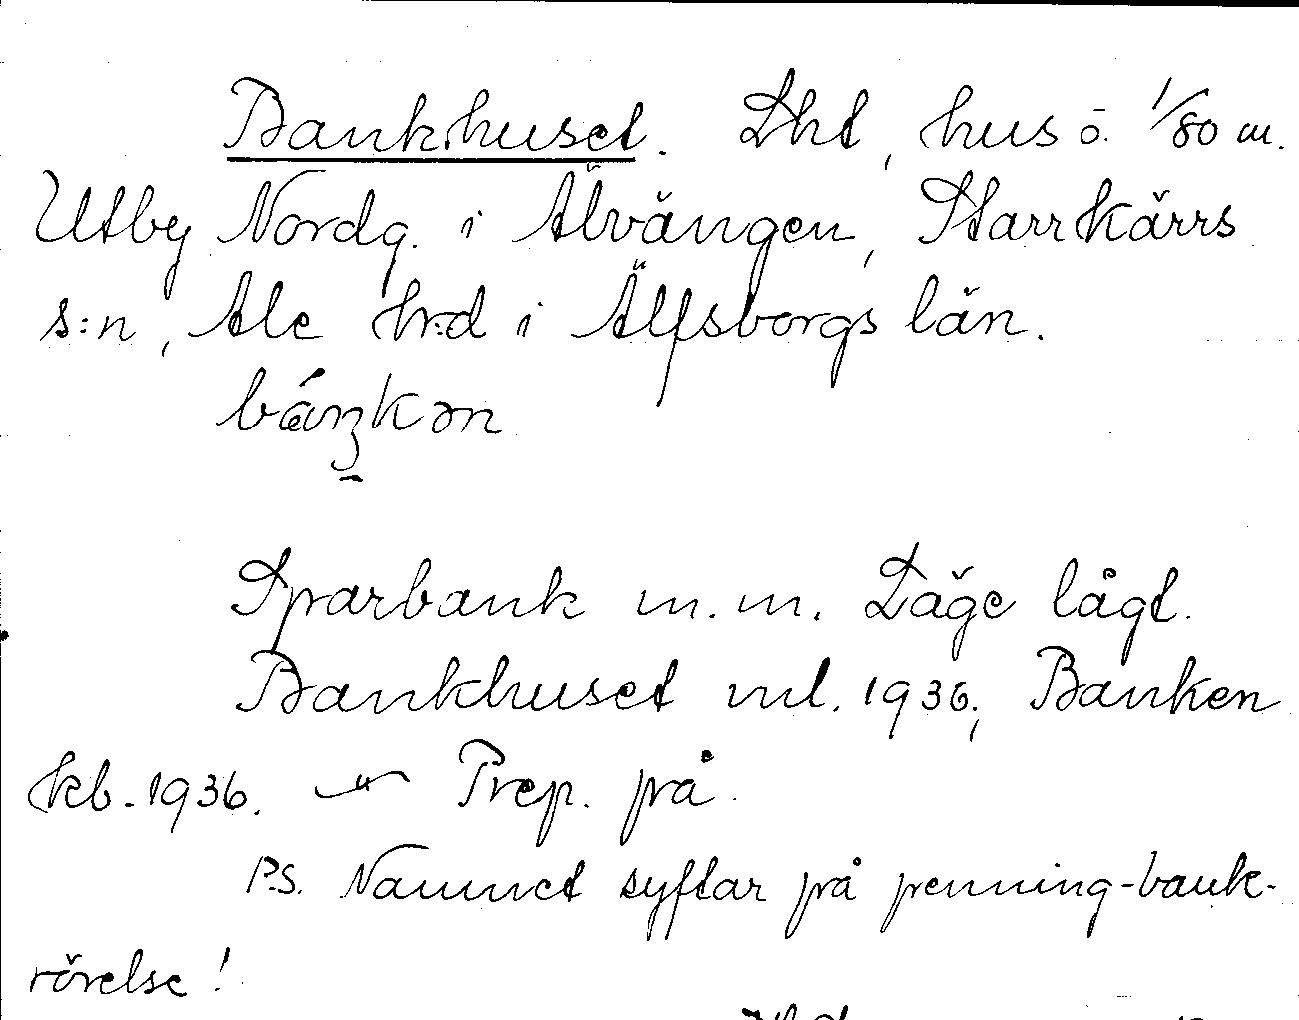 Bankhuset. Lht, hus ö. 1/80 m.
Utby Nordg. i Älvängen, Starrkärrs
s:n, Ale h:d i Älfsborgs län.
báŋkən
Sparbank m.m. Läge lågt.
Bankhuset ml. 1936; Banken
kb. 1936. — " — Prep. på
P.S. Namnet syftar på penning-bank-
rörelse!